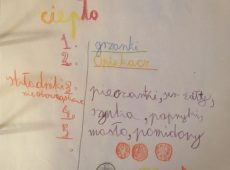 ciepło
1. grzanki
2. Opiekacz
składniki 3. pieczarki, ser żółty,
4. szynka, papryka,
5. masło, pomidory